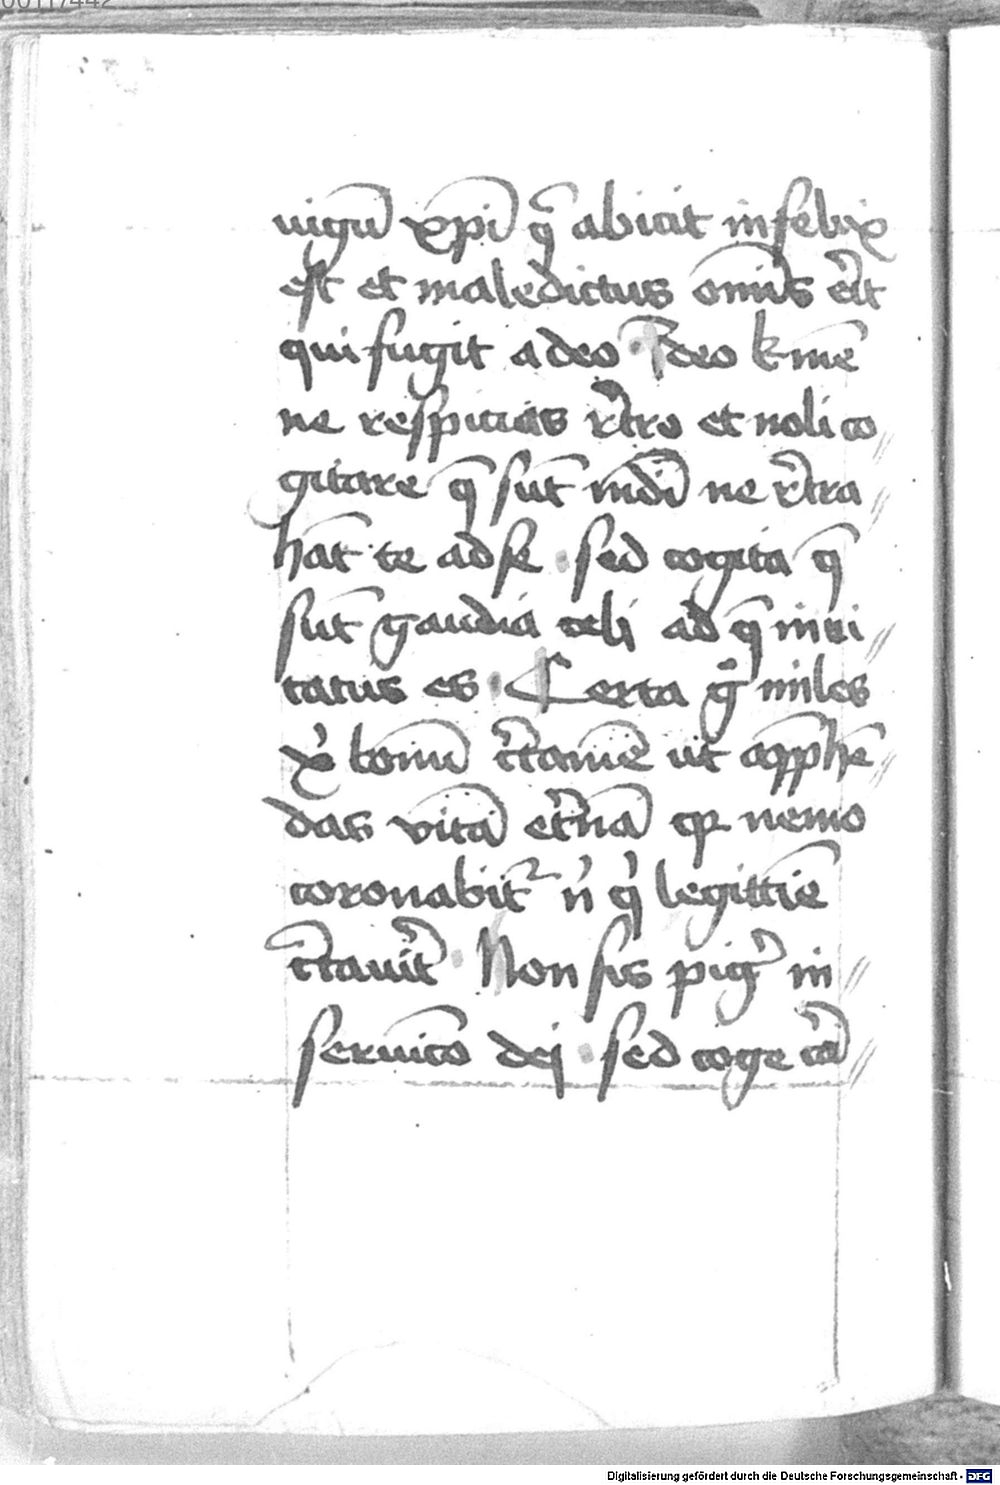 uigū xp̄i q̄ abicit infelix
est et maledictus om̄is er̄it
qui fugit a deo · Ideo k-mē
ne respicias rͤtro et noli co
gitare q̄ sūt mūdi ne rͤtra
hāt te ad se · sed cogita q̄
sūt gaudia celi ad q̄ inui
tatus es · Certa gͦ miles
xͥ bonū c̄tamē ut app̄hē
das vitā et̄nā qꝛ nemo
coronabit᷑ nͥ qͥ legittīe
c̄tauīt · Non sis pig̾ in
seruicō dei · sed coge
Digitalisierung gefördert durch die Deutsche Forschungsgemeinschaft - DFG